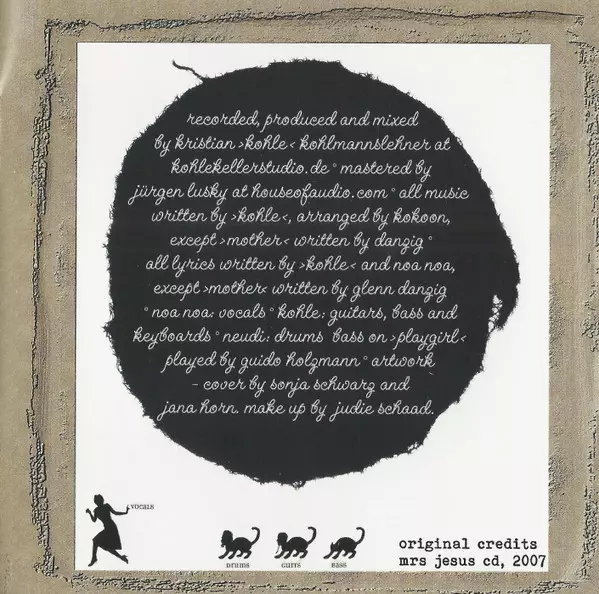 recorded, produced and mixed
by kristian >kohle< kohlmannslehner at
kohlekellerstudio.de ° mastered by
jürgen lusky at houseofaudio.com ° all music
written by >kohle<, arranged by kokoon,
except >mother< written by danzig °
all lyrics written by >kohle< and noa noa,
except >mother< written by glenn danzig
° noa noa: vocals ° kohle: guitars, bass and
keyboards ° neudi: drums bass on >playgirl<
played by guido holzmann ° artwork
- cover by sonja schwarz and
jana horn. make up by judie schaad.
VOCALS
DRUMS GUITS BASS
original credits
mrs jesus cd, 2007